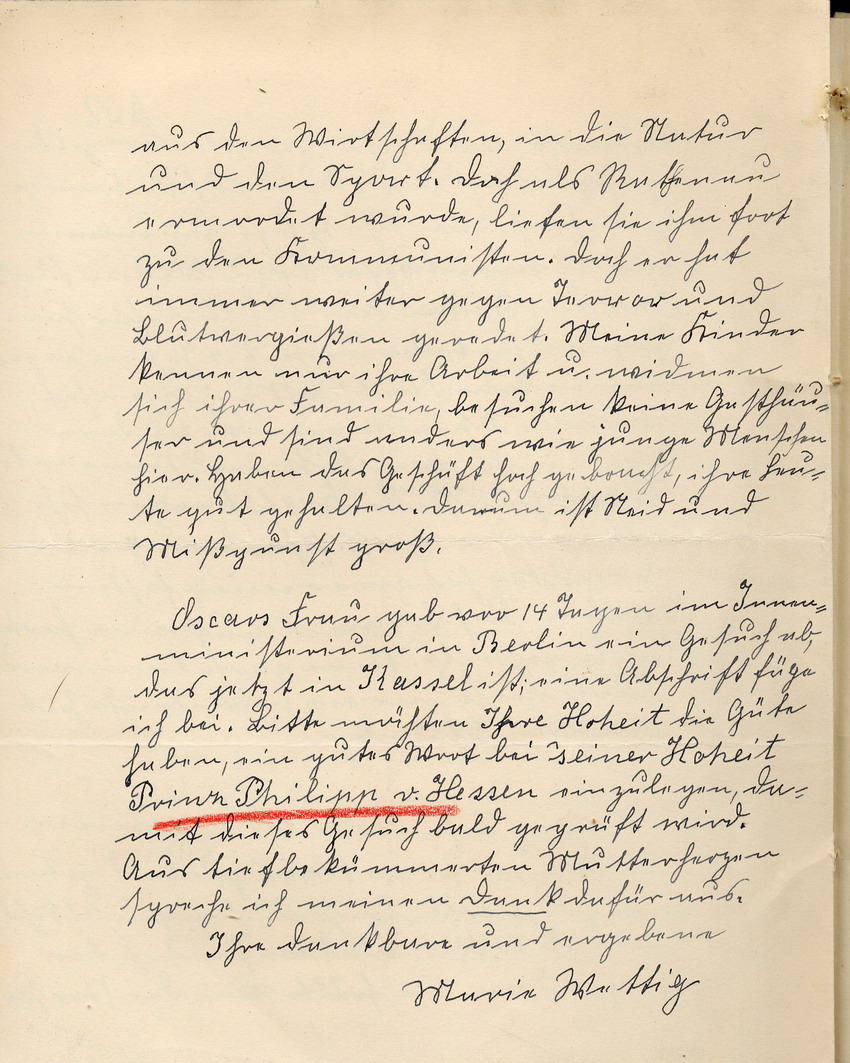 aus den Wirtschaften, in die Natur
und den Sport. Doch als Rathenau
ermordet wurde, liefen sie ihm fort
zu den Kommunisten. Doch er hat
immer weiter gegen Terror und
Blutvergießen geredet. Meine Kinder
kennen nur ihre Arbeit u. widmen
sich ihrer Familie, besuchen keine Gasthäu=
ser und sind anders wie junge Menschen
hier. Haben das Geschäft hoch gebracht, ihre Leu=
te gut gehalten. Darum ist Neid und
Mißgunst groß.
Oscars Frau gab vor 14 Tagen im Innen=
ministerium in Berlin ein Gesuch ab,
das jetzt in Kassel ist; eine Abschrift füge
ich bei. Bitte möchten Ihre Hoheit die Güte
haben, ein gutes Wort bei seiner Hoheit
Prinz Philipp v. Hessen einzulegen, da=
mit dieses Gesuch bald geprüft wird.
Aus tiefbekümmerten Mutterherzen
spreche ich meinen Dank dafür aus.
Ihre dankbare und ergebene
Marie Wettig